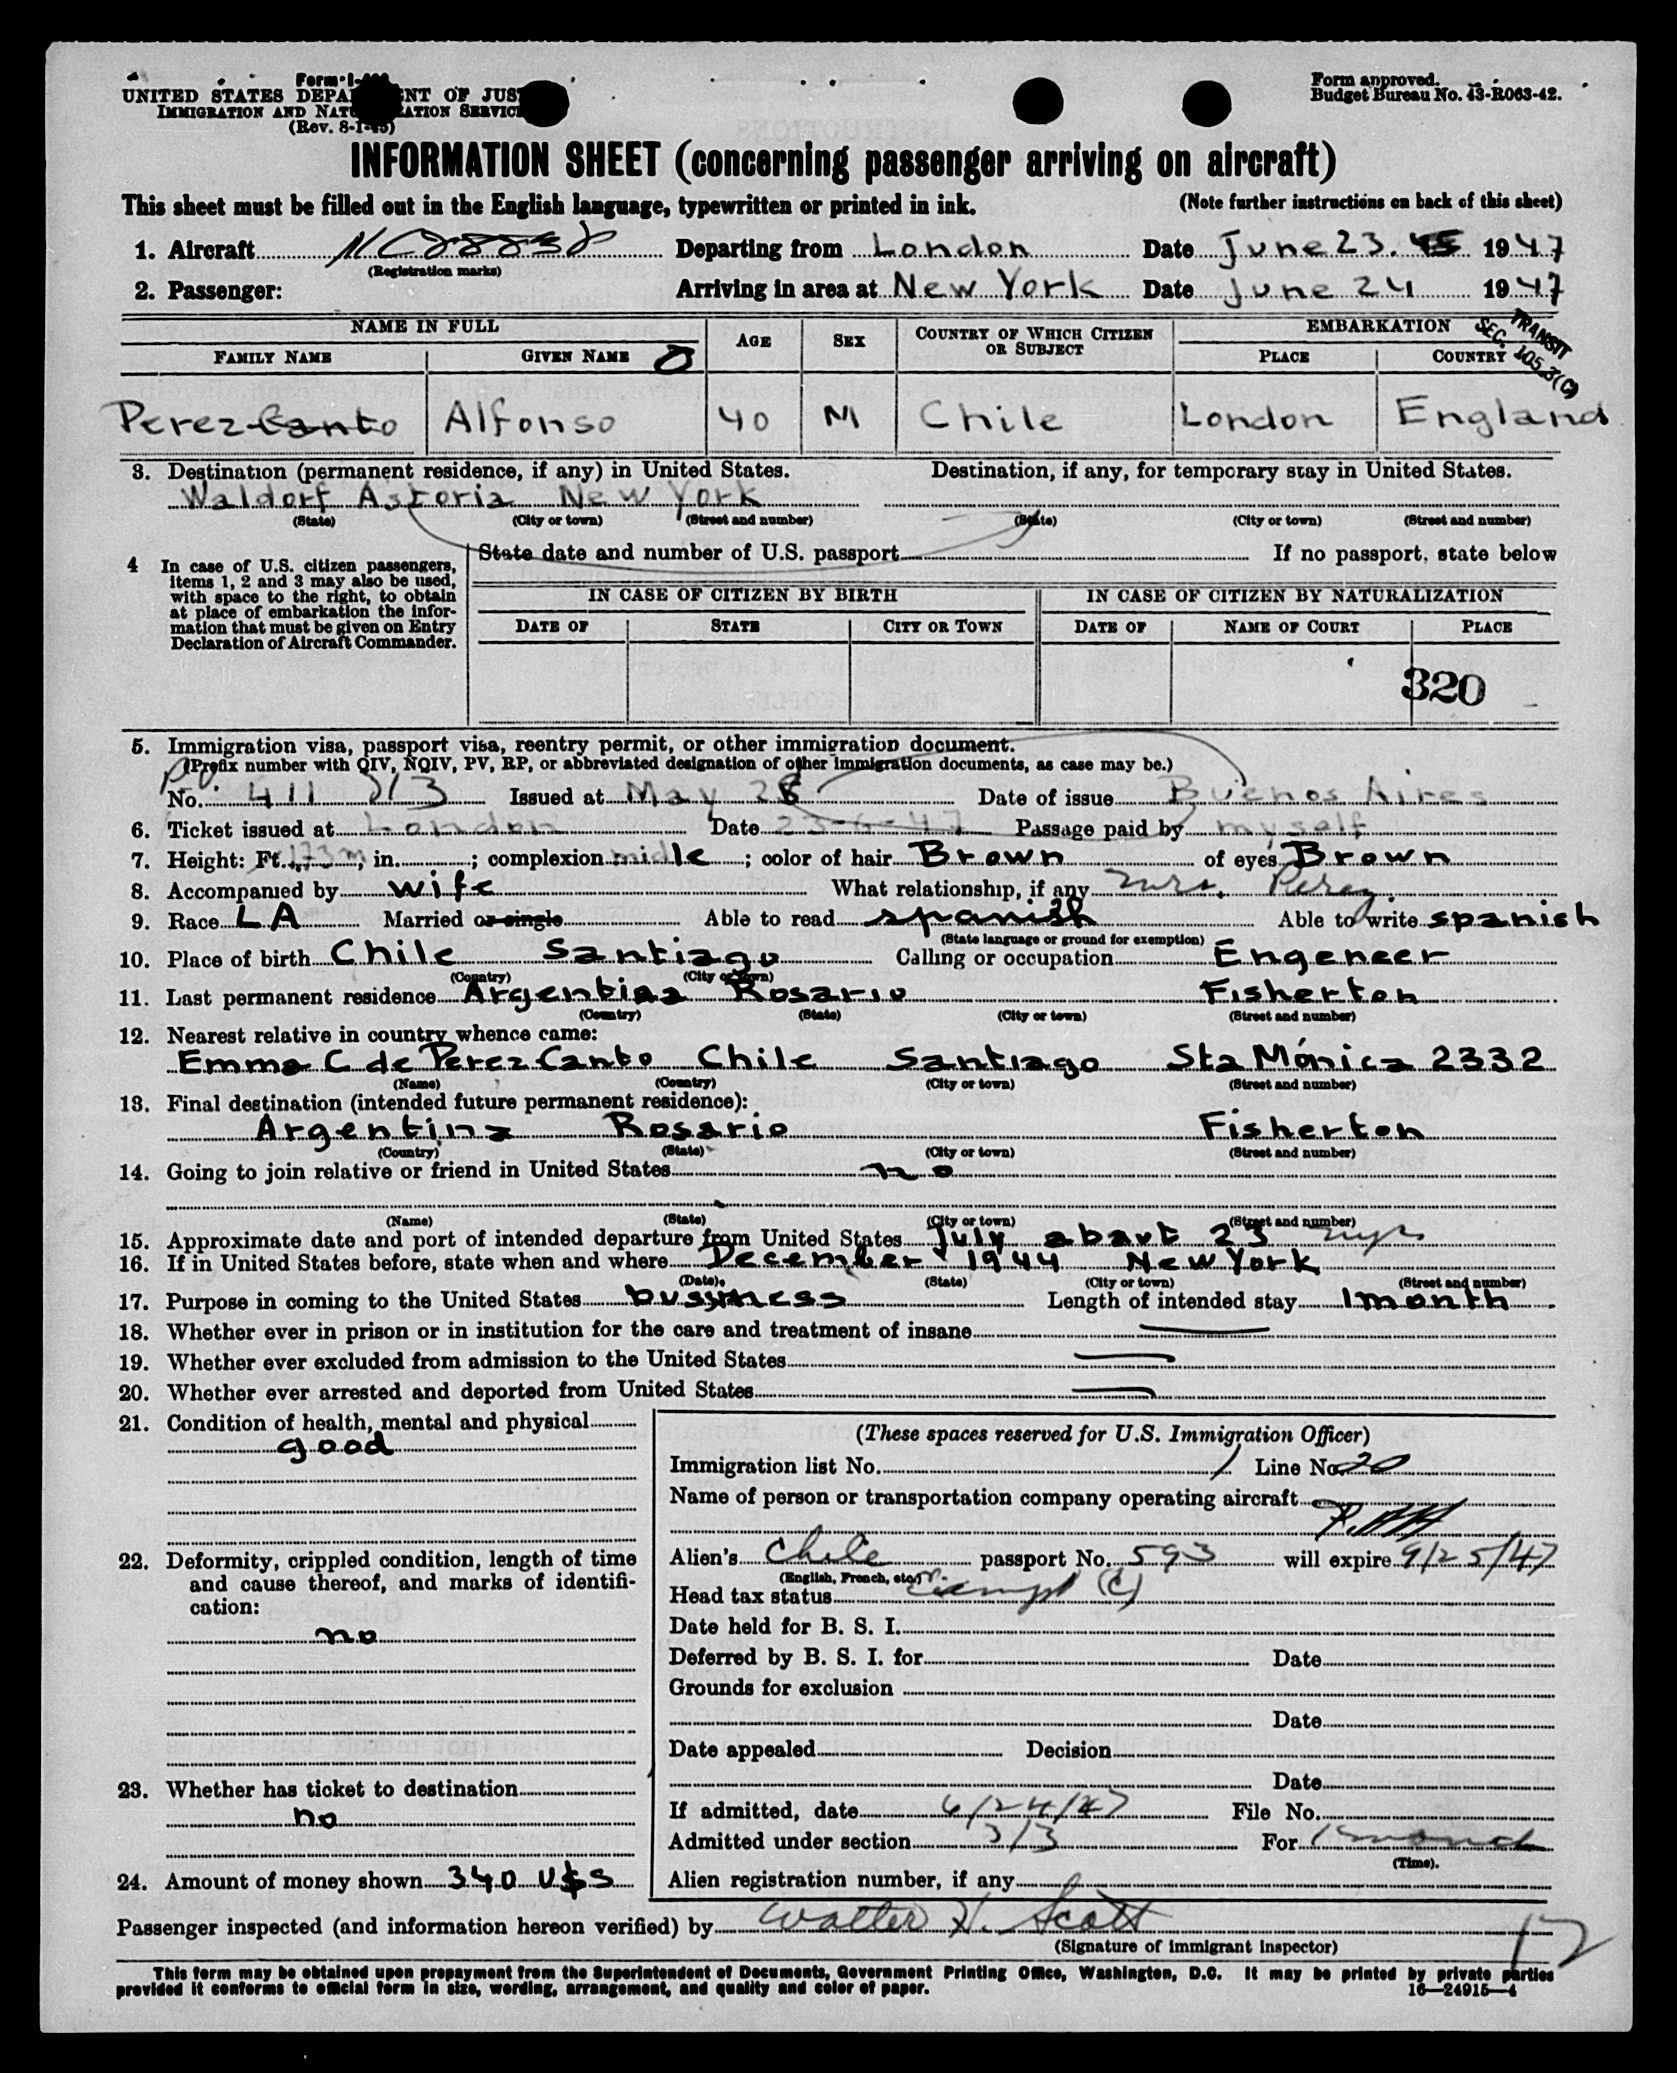 Form I-
UNITED STATES DEPARTMENT OF JUSTICE
IMMIGRATION AND NATURALIZATION SERVICE
(Rev. 8-1-45)
Form approved.
Budget Bureau No. 43-R063-42.
INFORMATION SHEET (concerning passenger arriving on aircraft)
This sheet must be filled out in the English language, typewritten or printed in ink. (Note further instructions on back of this sheet)
1. Aircraft Departing from London Date June 23. 1947
(Registration marks)
2. Passenger: Arriving in area at New York Date June 24 1947
TRANSIT
SEC. 105.3(C)
NAME IN FULL AGE SEX COUNTRY OF WHICH CITIZEN OR SUBJECT EMBARKATION
FAMILY NAME GIVEN NAME PLACE COUNTRY
Perez-Canto Alfonso 40 M Chile London England
3. Destination (permanent residence, if any) in United States. Destination, if any, for temporary stay in United States.
Waldorf Astoria New York
(State) (City or town) (Street and number) (State) (City or town) (Street and number)
4 In case of U.S. citizen passengers, items 1, 2 and 3 may also be used, with space to the right, to obtain at place of embarkation the information that must be given on Entry Declaration of Aircraft Commander.
State date and number of U.S. passport If no passport, state below
IN CASE OF CITIZEN BY BIRTH IN CASE OF CITIZEN BY NATURALIZATION
DATE OF STATE CITY OR TOWN DATE OF NAME OF COURT PLACE
320
5. Immigration visa, passport visa, reentry permit, or other immigration document.
(Prefix number with QIV, NQIV, PV, RP, or abbreviated designation of other immigration documents, as case may be.)
P.V.
No. 411 313 Issued at May 28 Date of issue Buenos Aires
6. Ticket issued at London Date 23-6-47 Passage paid by myself
7. Height: Ft. 173 m, in. ; complexion midle ; color of hair Brown of eyes Brown
8. Accompanied by wife What relationship, if any Mrs. Perez
9. Race LA Married or single Able to read spanish Able to write spanish
(State language or ground for exemption)
10. Place of birth Chile Santiago Calling or occupation Engeneer
(Country) (City or town)
11. Last permanent residence Argentina Rosario Fisherton
(Country) (State) (City or town) (Street and number)
12. Nearest relative in country whence came:
Emma C de Perez-Canto Chile Santiago Sta Mónica 2332
(Name) (Country) (City or town) (Street and number)
13. Final destination (intended future permanent residence):
Argentina Rosario Fisherton
(Country) (State) (City or town) (Street and number)
14. Going to join relative or friend in United States no
(Name) (State) (City or town) (Street and number)
15. Approximate date and port of intended departure from United States July abaut 23
16. If in United States before, state when and where December 1944 New York
(Date) (State) (City or town) (Street and number)
17. Purpose in coming to the United States bussines Length of intended stay 1 month
18. Whether ever in prison or in institution for the care and treatment of insane
19. Whether ever excluded from admission to the United States
20. Whether ever arrested and deported from United States
21. Condition of health, mental and physical
good
22. Deformity, crippled condition, length of time
and cause thereof, and marks of identifi-
cation:
no
23. Whether has ticket to destination
no
24. Amount of money shown 340 U$S
(These spaces reserved for U.S. Immigration Officer)
Immigration list No. 1 Line No. 20
Name of person or transportation company operating aircraft
Alien's Chile passport No. 593 will expire 9/25/47
(English, French, etc.)
Head tax status Exempt (C)
Date held for B. S. I.
Deferred by B. S. I. for Date
Grounds for exclusion
Date
Date appealed Decision
Date
If admitted, date 6/24/47 File No.
Admitted under section 3/3 For 1 month
(Time).
Alien registration number, if any
Passenger inspected (and information hereon verified) by Walter H. Scott
(Signature of immigrant inspector)
This form may be obtained upon prepayment from the Superintendent of Documents, Government Printing Office, Washington, D.C. It may be printed by private parties
provided it conforms to official form in size, wording, arrangement, and quality and color of paper. 16—24915—4